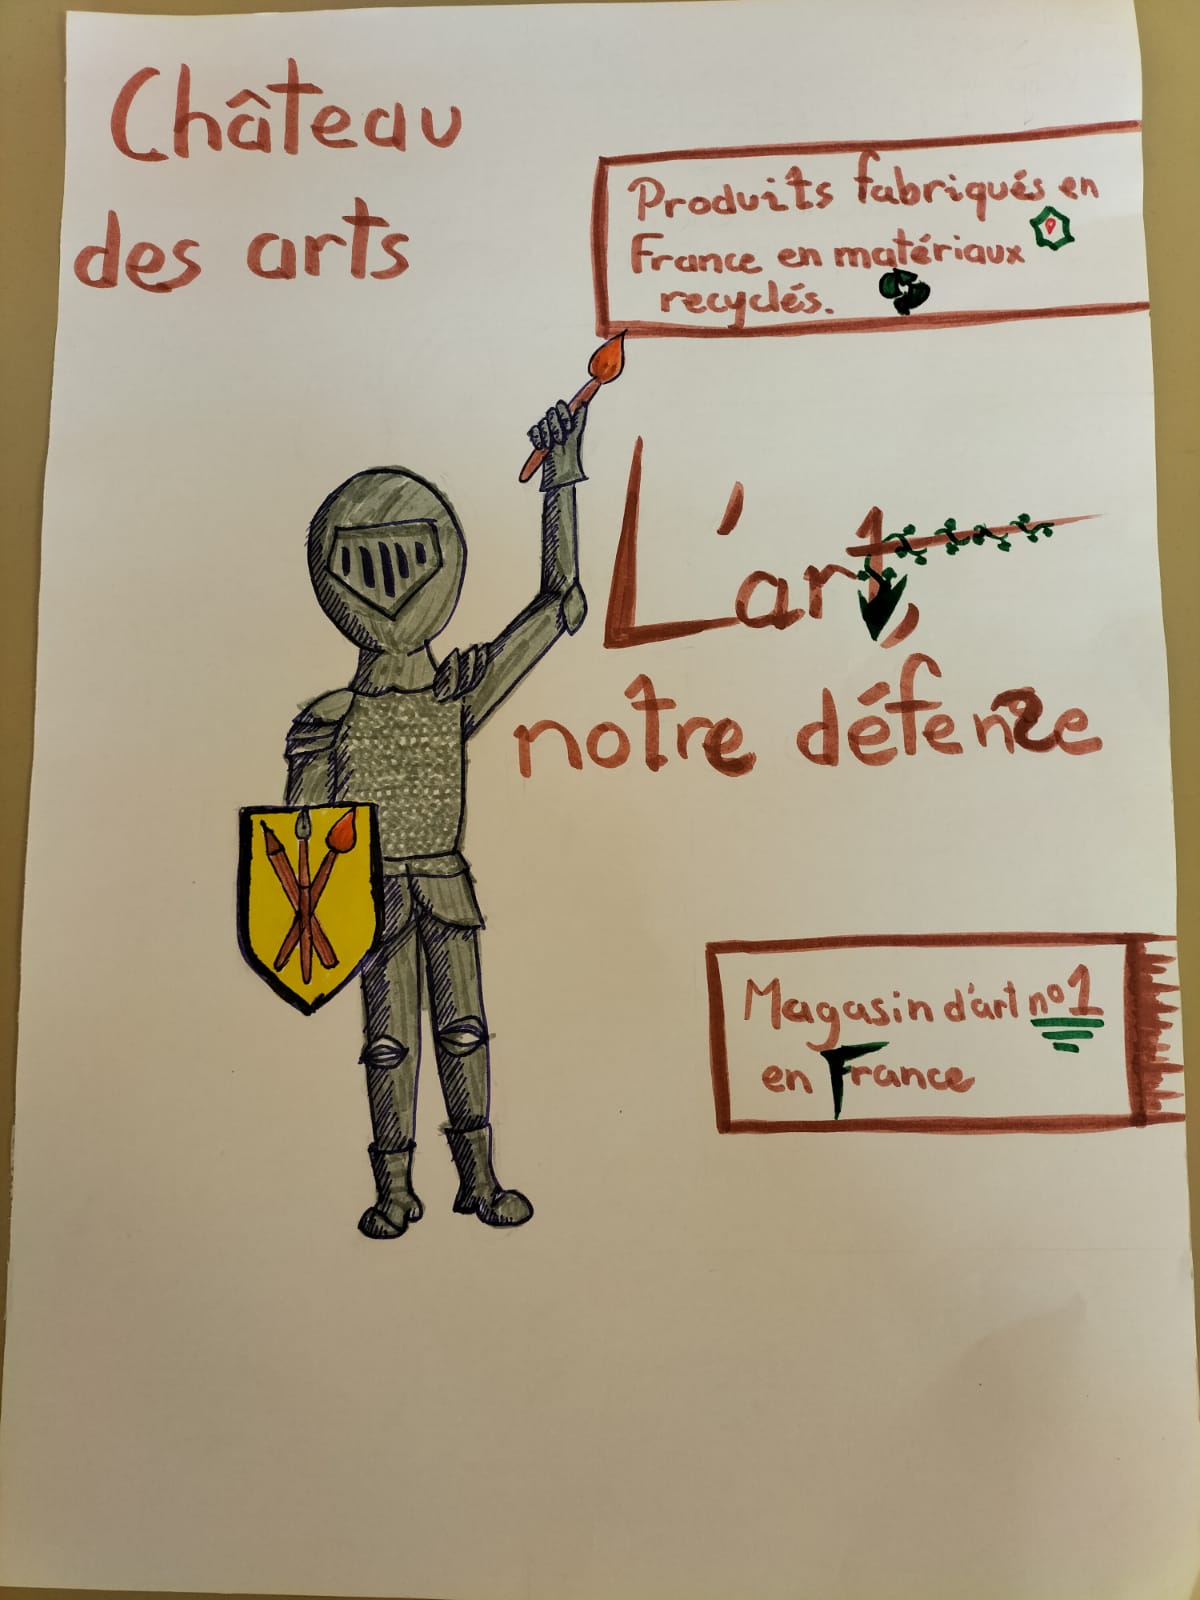 Château
des arts
Produits fabriqués en
France en matériaux
recyclés.
L'art,
notre défense
Magasin d'art n°1
en France